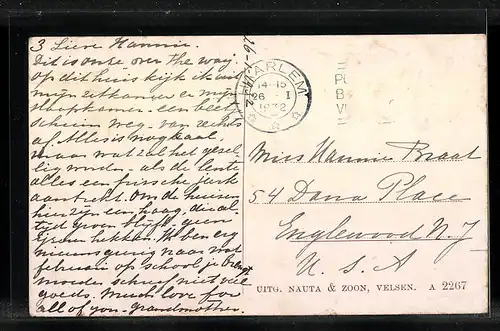 3 Lieve Hannie.
Dit is onze over the way.
Op dit huis kijk ik uit
mijn zitkamer en mijn
slaapkamer - een beetje
schuin weg - van rechts
af. Alles is nog kaal.
maar wat zal het gezel-
lig worden - als de lente
alles een frissche jurk
aantrekt. Om de huizen
hier zijn een haag, die al-
tijd groen blijft, geen
ijzeren hekken. Ik ben erg
nieuwsgierig naar wat
februari op school je brengt
moeder schreef niet veel
goeds. Much love for
all of you - Grandmother.
HAARLEM
14-15
26 I
1932
Miss Hannie Praat
54 Dana Place
Englewood N. J
U. S. A
UITG. NAUTA & ZOON, VELSEN. A 2267